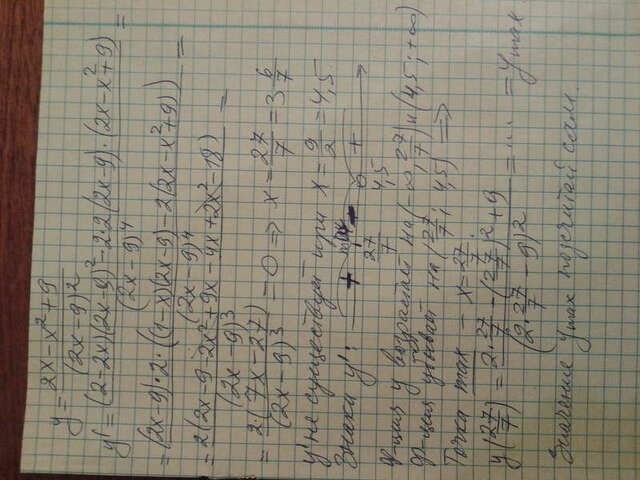 y = (2x - x² + 9)/(2x - 9)²
y' = ((2 - 2x)(2x - 9)² - 2·2(2x - 9)·(2x - x² + 9))/(2x - 9)⁴ =
= (2x - 9)·2·((1 - x)(2x - 9) - 2(2x - x² + 9))/(2x - 9)⁴ =
= 2(2x - 9 - 2x² + 9x - 4x + 2x² - 18)/(2x - 9)³ =
= 2(7x - 27)/(2x - 9)³ = 0 ⇒ x = 27/7 = 3 6/7
y' не существует при x = 9/2 = 4,5.
Знаки y': + 27/7 - 4,5 +
Ф-ция y возрастает на (-∞; 27/7) и (4,5; +∞)
Ф-ция убывает на (27/7; 4,5) ⇒
Точка max - x = 27/7
y(27/7) = (2·27/7 - (27/7)² + 9)/(2·27/7 - 9)² = ... = y max
Значение y max подсчитай сам.